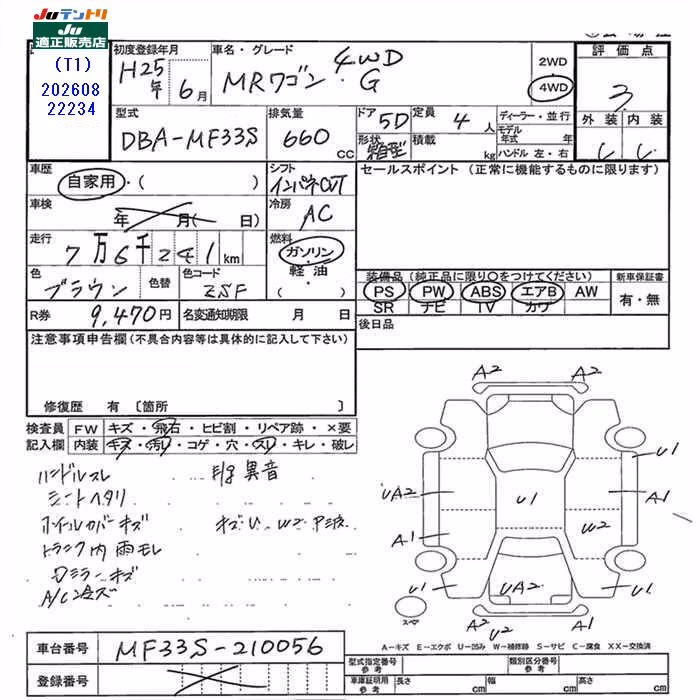 JUテントリ
JU
適正販売店
(T1)
202608
22234
初度登録年月
H25年 6月
車名・グレード
MRワゴン・4WD G
2WD
4WD
評価点
3
外装 内装
型式
DBA-MF33S
排気量
660 cc
ドア
5D
定員
4人
形状
箱型
積載
kg
ディーラー・並行
モデル年式 年
ハンドル 左・右
車歴
自家用・( )
シフト
インパネCVT
セールスポイント (正常に機能するものに限ります)
車検
年 月( 日)
冷房
AC
走行
7万6千241km
燃料
ガソリン・
軽油
( ・ )
色
ブラウン
色替
色コード
ZSF
装備品 (純正品に限り〇をつけてください)
PS PW ABS エアB AW
SR ナビ TV カワ
新車保証書
有・無
R券
9,470円
名変通知期限 月 日
後日品
注意事項申告欄 (不具合内容等は具体的に記入して下さい)
修復歴 有 〔箇所 〕
検査員記入欄
FW キズ・飛石・ヒビ割・リペア跡・×要
内装 キズ・汚レ・コゲ・穴・スレ・キレ・破レ
ハンドルスレ
異音
シートヘタリ
ホイルカバーキズ
キズU W2
トランク内雨モレ
ミラーキズ
A/C冷ズ
A2 A2
U1
UA2 U1 A1
A1 W2
U1 UA2 U1
A2 U2 A2
スペア
A-キズ E-エクボ U-凹み W-補修跡 S-サビ C-腐食 XX-交換済
車台番号
MF33S-210056
登録番号
型式指定番号 参考
類別区分番号 参考
車庫証明用 参考
長さ cm 幅 cm 高さ cm